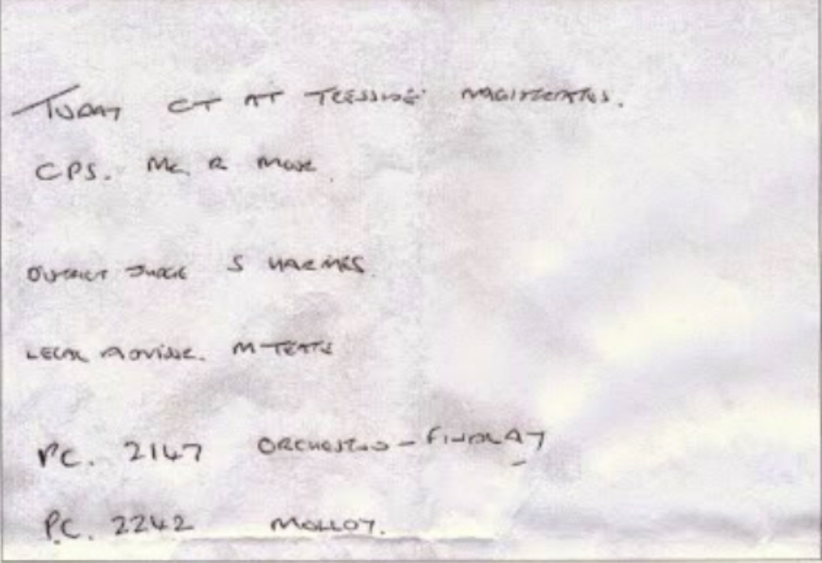 TODAY CT AT TEESSIDE MAGISTRATES.
CPS. Mr R
DISTRICT JUDGE S HARMES
LEGAL ADVISOR. M TEATE
P.C. 2147 ORCHESTO-FINDLAY
P.C. 2242 MOLLOY.